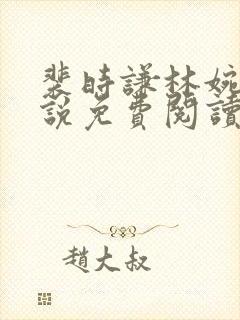 裴時謙林婉
說免費閱讀
趙大叔